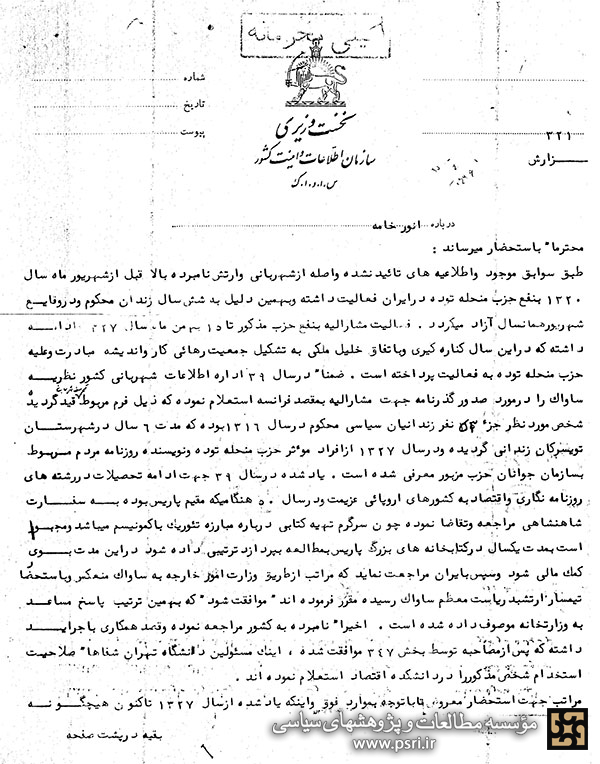 خیلی محرمانه
شماره
تاریخ
پیوست
نخست وزیری
سازمان اطلاعات و امنیت کشور
س.ا.و.ا.ک
۳۲۱
گزارش
درباره انور خامه
محترما" باستحضار میرساند :
طبق سوابق موجود واطلاعیه های تائید نشده واصله ازشهربانی وارتش نامبرده بالا قبل ازشهریور ماه سال
۱۳۲۰ بنفع حزب منحله توده درایران فعالیت داشته وبهمین دلیل به شش سال زندان محکوم ودروقایع
شهریورهمانسال آزاد میگردد . فعالیت مشارالیه بنفع حزب مذکور تا ۱۵ بهمن ماه سال ۳۲۷ ادامه
داشته که دراین سال کناره گیری وباتفاق خلیل ملکی به تشکیل جمعیت رهائی کار واندیشه مبادرت وعلیه
حزب منحله توده به فعالیت پرداخته است . ضمنا" درسال ۳۹ اداره اطلاعات شهربانی کشور نظریه
ساواک را درمورد صدور گذرنامه جهت مشارالیه بمقصد فرانسه استعلام نموده که ذیل فرم مربوط قید گردیده
شخص مورد نظر جزء ۵۳ نفر زندانیان سیاسی محکوم درسال ۱۳۱۶ بوده که مدت ۶ سال درشهرستان
تویسرکان زندانی گردیده ودرسال ۱۳۲۷ ازافراد موثر حزب منحله توده ونویسنده روزنامه مردم مربوط
بسازمان جوانان حزب مزبور معرفی شده است . یاد شده درسال ۳۹ جهت ادامه تحصیلات دررشته های
روزنامه نگاری واقتصاد به کشورهای اروپائی عزیمت ودرسال ۵۰ هنگامیکه مقیم پاریس بوده به سفارت
شاهنشاهی مراجعه وتقاضا نموده چون سرگرم تهیه کتابی درباره مبارزه تئوریک باکمونیسم میباشد ومجبور
است بمدت یکسال درکتابخانه های بزرگ پاریس بمطالعه بپردازد ترتیبی داده شود دراین مدت بوی
کمک مالی شود وسپس بایران مراجعت نماید که مراتب ازطریق وزارت امور خارجه به ساواک منعکس وباستحضار
تیمسار ارتشبد ریاست معظم ساواک رسیده مقرر فرموده اند "موافقت شود" که بهمین ترتیب پاسخ مساعد
به وزارتخانه موصوف داده شده است . اخیرا" نامبرده به کشور مراجعه نموده وقصد همکاری باجراید
داشته که پس ازمصاحبه توسط بخش ۳۴۷ موافقت شده ، اینک مسئولین دانشگاه تهران شفاها" صلاحیت
استخدام شخص مذکوررا دردانشکده اقتصاد استعلام نموده اند .
مراتب جهت استحضار معروض باتوجه بموارد فوق واینکه یاد شده ازسال ۱۳۲۷ تاکنون هیچگونه
بقیه درپشت صفحه
مؤسسه مطالعات و پژوهشهای سیاسی
www.psri.ir